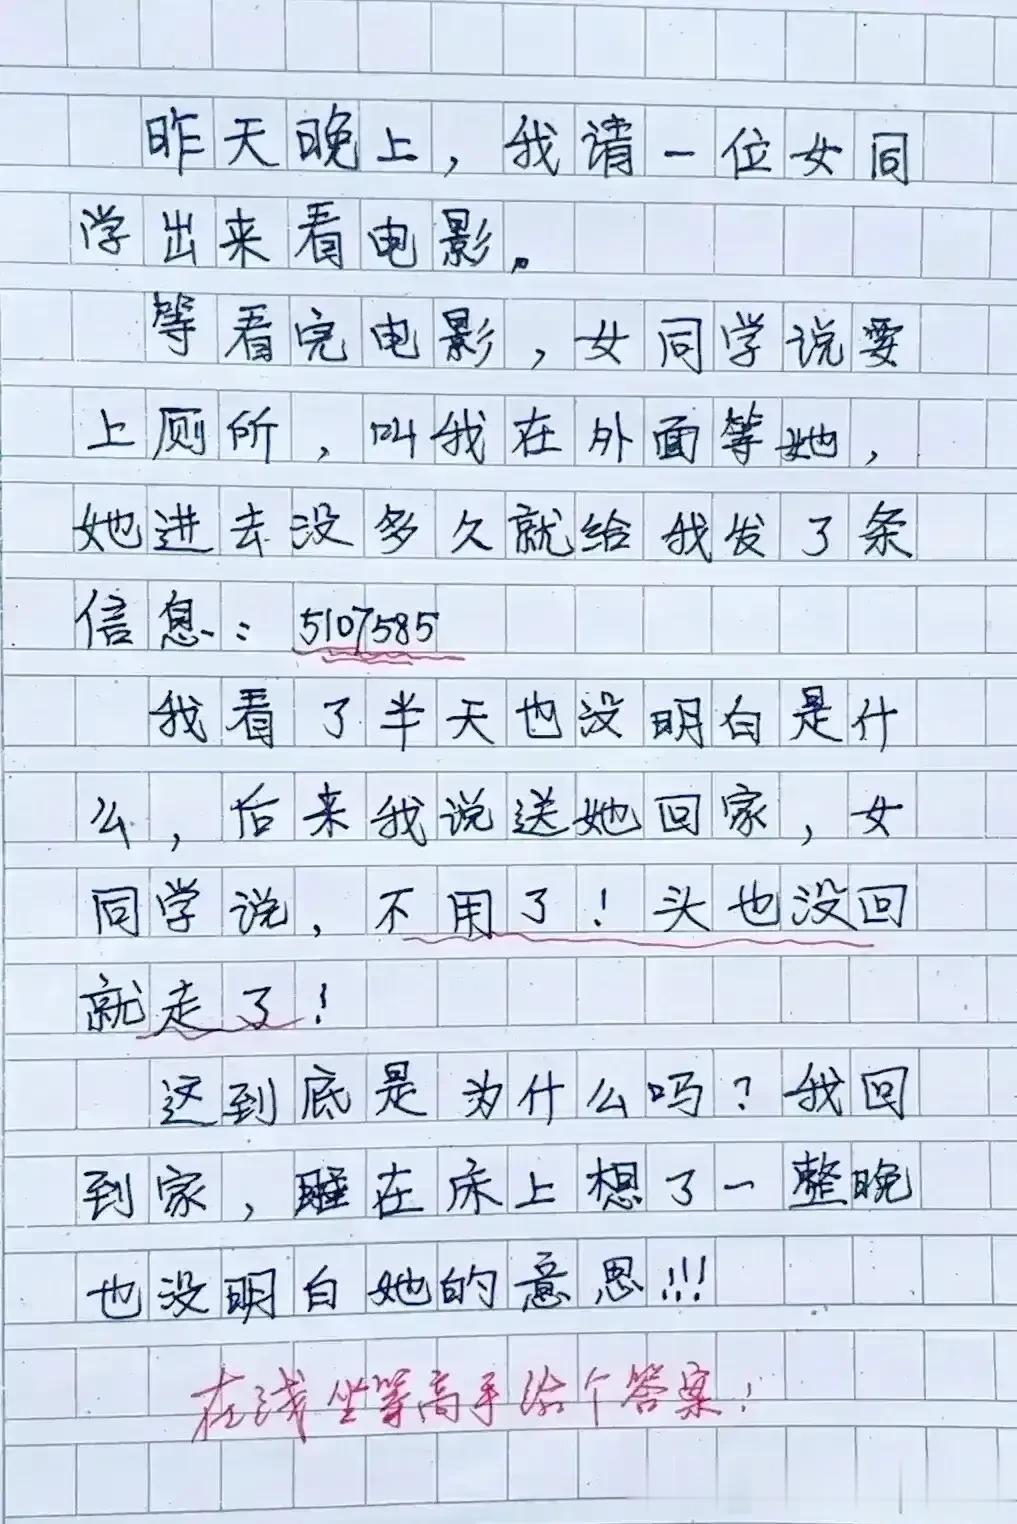 昨天晚上，我请一位女同
学出来看电影。
等看完电影，女同学说要
上厕所，叫我在外面等她，
她进去没多久就给我发了条
信息：5107585
我看了半天也没明白是什
么，后来我说送她回家，女
同学说，不用了！头也没回
就走了！
这到底是为什么吗？我回
到家，睡在床上想了一整晚
也没明白她的意思!!!
在线坐等高手给个答案！